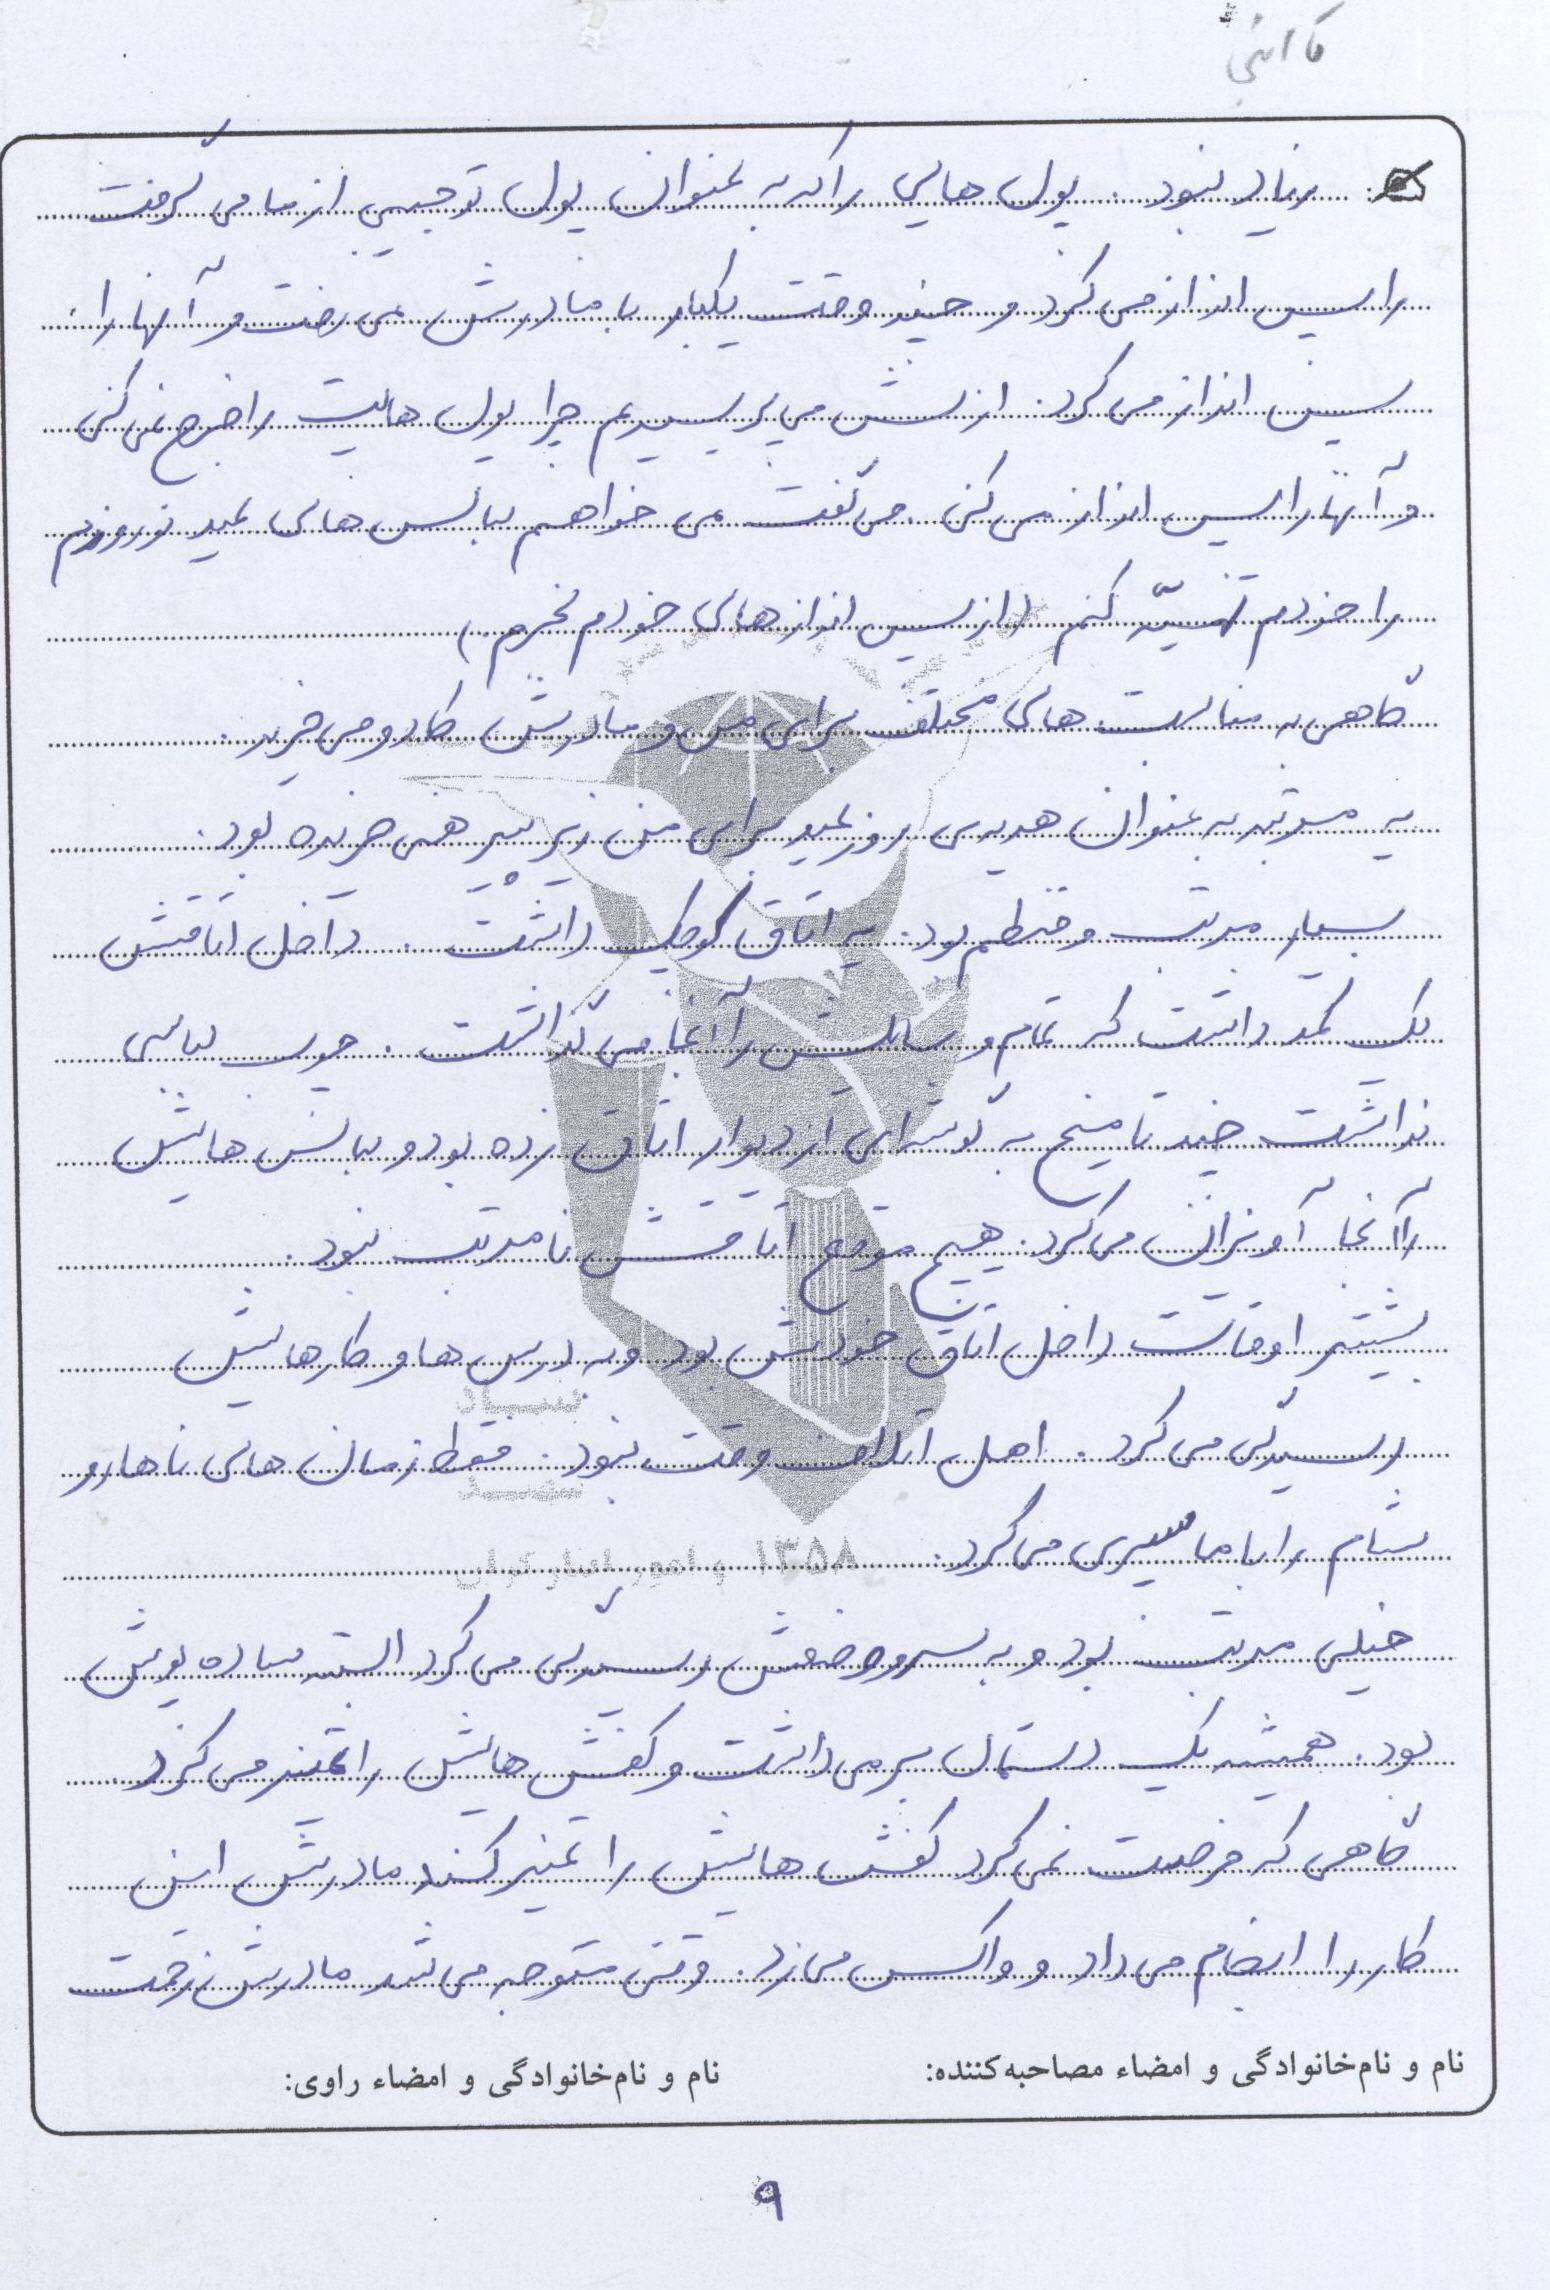 تا اینجا
زیاد نبود. پول هایی را که به عنوان پول توجیبی از ما می گرفت
را پس انداز می کرد و چند وقت یکبار با مادرش می رفت و آنها را
پس انداز می کرد. ازش می پرسیدیم چرا پول هایت را خرج نمی کنی
و آنها را پس انداز می کنی. می گفت می خواهم لباس های عید نوروزم
را خودم تهیّه کنم (از پس انداز های خودم بخرم.)
گاهی به مناسبت های مختلف برای من و مادرش کادو می خرید.
یه مرتبه به عنوان هدیه ی روز عید برای من زیرپیرهنی خریده بود.
بسیار مرتب و منظم بود. یه اتاق کوچک داشت. داخل اتاقش
یک کمد داشت که تمام وسایلش را آنجا می گذاشت. چوب لباسی
نداشت چند تا میخ به گوشه ای از دیوار اتاق زده بود و لباس هایش
را آنجا آویزان می کرد. هیچ موقع اتاقش نامرتب نبود.
بیشتر اوقات داخل اتاق خودش بود و به درس ها و کارهایش
رسیدگی می کرد. اهل اتلاف وقت نبود. فقط زمان های ناهار و
شام را با ما سپری می کرد.
خیلی مرتب بود و به سر و وضعش رسیدگی می کرد البته ساده پوش
بود. همیشه یک دستمال برمی داشت و کفش هایش را تمیز می کرد
گاهی که فرصت نمی کرد کفش هایش را تمیز کند مادرش این
کار را انجام می داد و واکس می زد. وقتی متوجه می شد مادرش زحمت
نام و نام‌خانوادگی و امضاء مصاحبه‌کننده: نام و نام‌خانوادگی و امضاء راوی:
۹